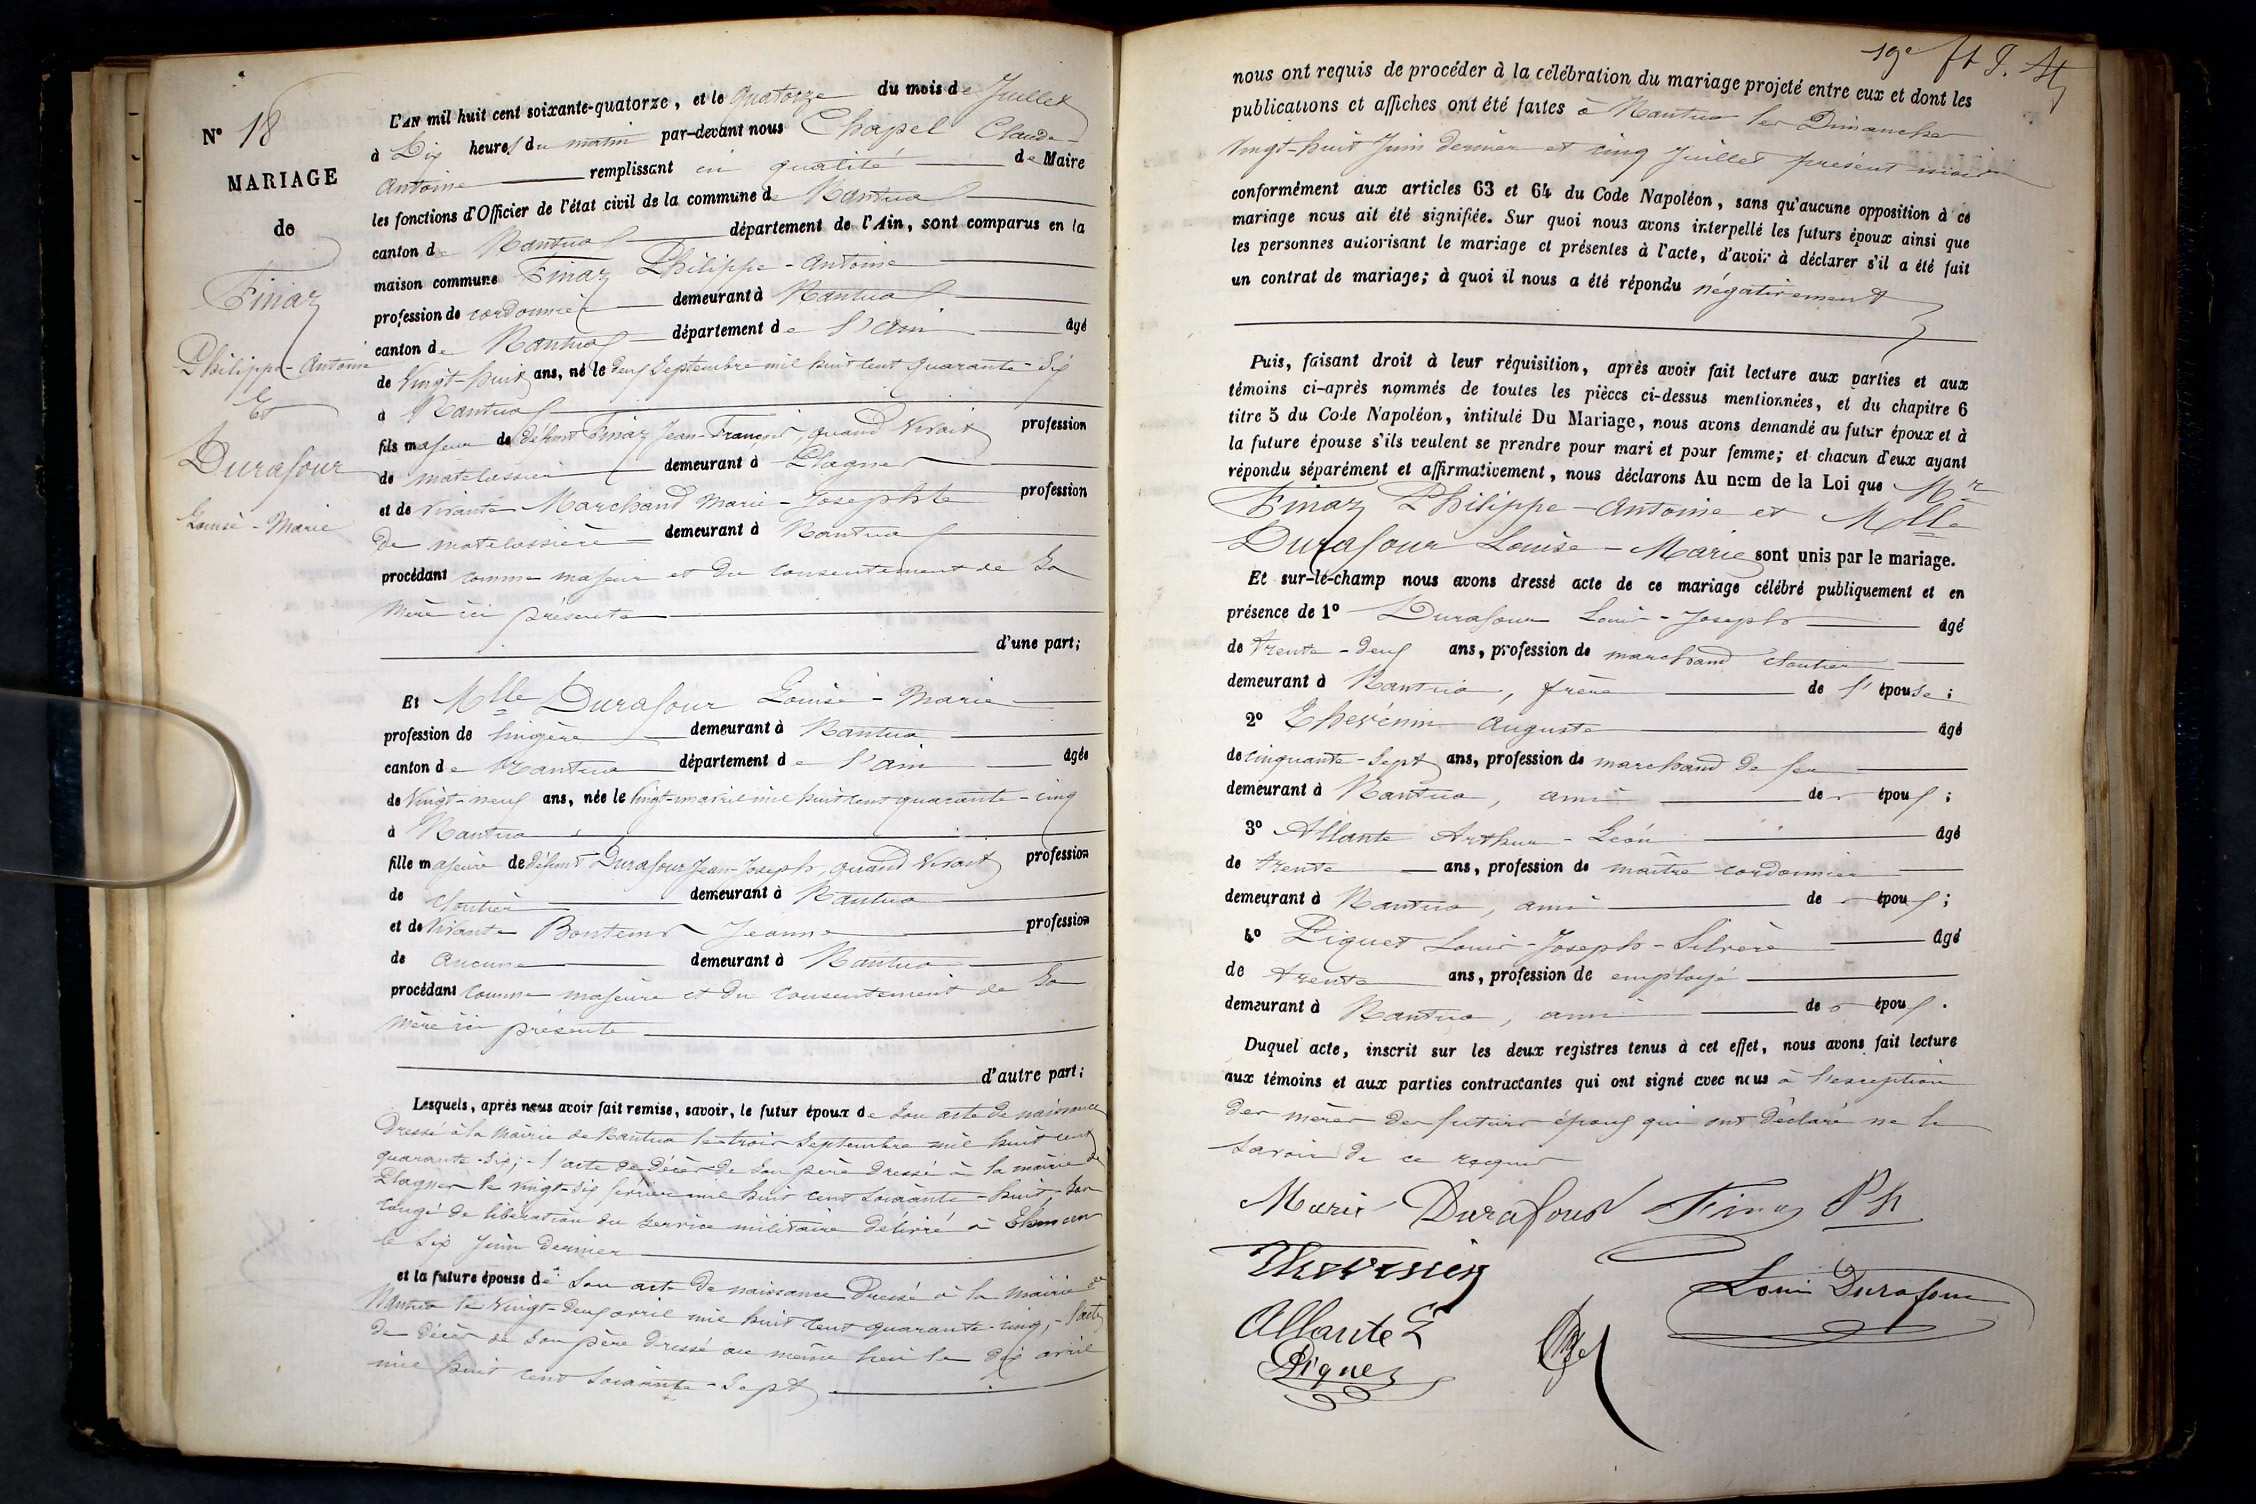 N° 18
MARIAGE
de
Finaz
Philippe-Antoine
Et
Durafour
Louise-Marie
L'AN mil huit cent soixante-quatorze, et le quatorze du mois de Juillet
à Dix heures du matin par-devant nous Chapel Claude-
Antoine remplissant en qualité de Maire
les fonctions d'Officier de l'état civil de la commune de Nantua
canton de Nantua département de l'Ain, sont comparus en la
maison commune Finaz Philippe-Antoine
profession de cordonnier demeurant à Nantua
canton de Nantua département de l'Ain âgé
de vingt-huit ans, né le deux Septembre mil huit cent quarante-six
à Nantua
fils majeur de défunt Finaz Jean-François, quand vivait profession
de matelassier demeurant à Plagnes
et de vivante Marchand Marie-Josephte profession
de matelassière demeurant à Nantua
procédant comme majeur et du consentement de sa
mère ici présente
d'une part;
Et Mlle Durafour Louise-Marie
profession de lingère demeurant à Nantua
canton de Nantua département de l'Ain âgée
de vingt-neuf ans, née le vingt-un avril mil huit cent quarante-cinq
à Nantua
fille majeure de défunt Durafour Jean-Joseph, quand vivait profession
de cloutier demeurant à Nantua
et de vivante Bontems Jeanne profession
de aucune demeurant à Nantua
procédant comme majeure et du consentement de sa
mère ici présente
d'autre part;
Lesquels, après nous avoir fait remise, savoir, le futur époux de son acte de naissance
dressé à la Mairie de Nantua le trois Septembre mil huit cent
quarante-six; - l'acte de décès de son père dressé à la mairie de
Plagnes le vingt-six février mil huit cent soixante-huit, - son
congé de libération du service militaire délivré à Tlemcen
le six Juin dernier
et la future épouse de son acte de naissance dressé à la mairie de
Nantua le vingt-deux avril mil huit cent quarante-cinq, - l'acte
de décès de son père dressé au même lieu le dix avril
mil huit cent soixante-sept
19e ft
nous ont requis de procéder à la célébration du mariage projeté entre eux et dont les
publications et affiches ont été faites à Nantua les Dimanches
vingt-huit Juin dernier et cinq Juillet présent mois
conformément aux articles 63 et 64 du Code Napoléon, sans qu'aucune opposition à ce
mariage nous ait été signifiée. Sur quoi nous avons interpellé les futurs époux ainsi que
les personnes autorisant le mariage et présentes à l'acte, d'avoir à déclarer s'il a été fait
un contrat de mariage; à quoi il nous a été répondu négativement
Puis, faisant droit à leur réquisition, après avoir fait lecture aux parties et aux
témoins ci-après nommés de toutes les pièces ci-dessus mentionnées, et du chapitre 6
titre 5 du Code Napoléon, intitulé Du Mariage, nous avons demandé au futur époux et à
la future épouse s'ils veulent se prendre pour mari et pour femme; et chacun d'eux ayant
répondu séparément et affirmativement, nous déclarons Au nom de la Loi que Mr
Finaz Philippe-Antoine et Mlle
Durafour Louise-Marie sont unis par le mariage.
Et sur-le-champ nous avons dressé acte de ce mariage célébré publiquement et en
présence de 1° Durafour Louis-Joseph âgé
de trente-deux ans, profession de marchand cloutier
demeurant à Nantua, frère de l'épouse;
2° Thevenin Auguste âgé
de cinquante-sept ans, profession de marchand de fer
demeurant à Nantua, ami des époux;
3° Allante Arthur-Léon âgé
de trente ans, profession de maître cordonnier
demeurant à Nantua, ami des époux;
4° Piquet Louis-Joseph-Silvère âgé
de trente ans, profession de employé
demeurant à Nantua, ami des époux.
Duquel acte, inscrit sur les deux registres tenus à cet effet, nous avons fait lecture
aux témoins et aux parties contractantes qui ont signé avec nous à l'exception
des mères des futurs époux qui ont déclaré ne le
savoir de ce requis
Marie Durafour Finaz Ph
Thevenin
Louis Durafour
Allante L
Piquet